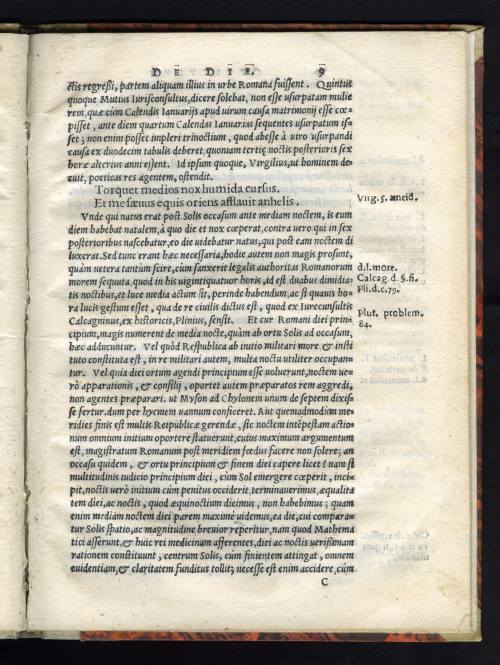 DE DIE. 9
ctis regreßi, partem aliquam illius in urbe Romana fuissent. Quintus
quoque Mutius Iurisconsultus, dicere solebat, non esse usurpatam mulie
rem, quæ cùm Calendis Ianuarijs apud uirum causa matrimonij esse cœ
pisset, ante diem quartum Calendas Ianuarias sequentes usurpatum is-
set; non enim posset impleri trinoctium, quod abesse à uiro usurpandi
causa ex duodecem tabulis deberet, quoniam tertię noctis posterioris sex
horæ alterius anni essent. Id ipsum quoque, Virgilius, ut hominem de-
cuit, poeticas res agentem, ostendit.
Torquet medios nox humida cursus.
Et me sæuus equis oriens afflauit anhelis.
Virg. 5. aneid.
Vnde qui natus erat post Solis occasum ante mediam noctem, is eum
diem habebat natalem, à quo die et nox cœperat, contra uero qui in sex
posterioribus nascebatur, eo die uidebatur natus, qui post eam noctem di
luxerat. Sed tunc erant hæc necessaria, hodie autem non magis prosunt,
quàm uetera tantùm scire, cùm sanxerit legalis authoritas Romanorum
morem sequuta, quod in his uigintiquatuor horis, id est duabus dimidia
tis noctibus, et luce media actum sit, perinde habendum, ac si quauis ho-
ra lucis gestum esset, qua de re ciuilis dictus est, quod ex Iureconsultis
Calcagninus, ex historicis, Plinius, sensit. Et cur Romani diei prin-
cipium, magis numerent de media nocte, quàm ab ortu Solis ad occasum,
hæc adducuntur. Vel quòd Respublica ab initio militari more & insti
tuto constituta est, in re militari autem, multa noctu utiliter occupan-
tur. Vel quia diei ortum agendi principum esse uoluerunt, noctem ue-
rò apparationis, & consilij, oportet autem præparatos rem aggredi,
non agentes præparari. ut Myson ad Chylonem unum de septem dixis-
se fertur. dum per hyemem uannum conficeret. Aut quemadmodum me-
ridies finis est multis Reipublicæ gerendæ, sic noctem intempestam actio-
num omnium initium oportere statuerunt, cuius maximum argumentum
est, magistratum Romanum post meridiem fœdus facere non solere; an
occasu quidem, & ortu principium & finem diei capere licet? nam si
multitudinis iudicio principium diei, cùm Sol emergere cœperit, inci-
pit, noctis uerò initum cùm penitus occiderit, terminauerimus, æqualita
tem diei, ac noctis, quod æquinoctium dicimus, non habebimus; quam
enim mediam noctem diei parem maximè uidemus, ea die, cui compara-
tur Solis spatio, ac magnitudine breuior reperitur, nam quod Mathema
tici asserunt, & huic rei medicinam afferentes, diei ac noctis uerißimam
rationem constituunt, centrum Solis, cùm finientem attingat, omnem
euidentiam, & claritatem funditus tollit; necesse est enim accidere, cùm
d.l. more.
Calcag. d. §. fi.
Pli. d. c. 79.
Plut. problem.
84.
C